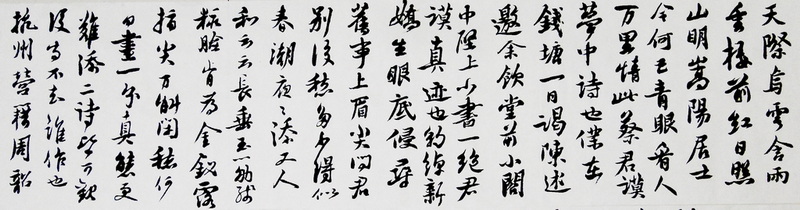 天際烏雲含雨
重樓前紅日照
山明嵩陽居士
今何在青眼看人
万里情此蔡君謨
夢中詩也僕在
錢塘一日謁陳述
邀余飲堂前小閣
中壁上小書一絕君
謨真迹也約綽新
嬌生眼底侵尋
舊事上眉尖問君
別後愁多少得似
春潮夜〻添又人
和云長垂玉筯殘
粧臉肯為金釵露
指尖万斛閑愁何
日盡一分真態更
難添二詩皆可觀
後詩不知誰作也
杭州營籍周韶